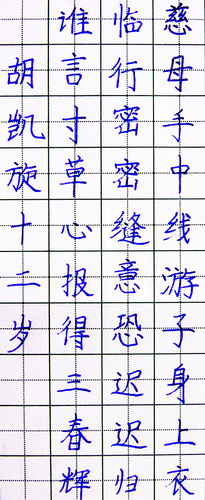 慈母手中线游子身上衣
临行密密缝意恐迟迟归
谁言寸草心报得三春辉
胡凯旋十二岁